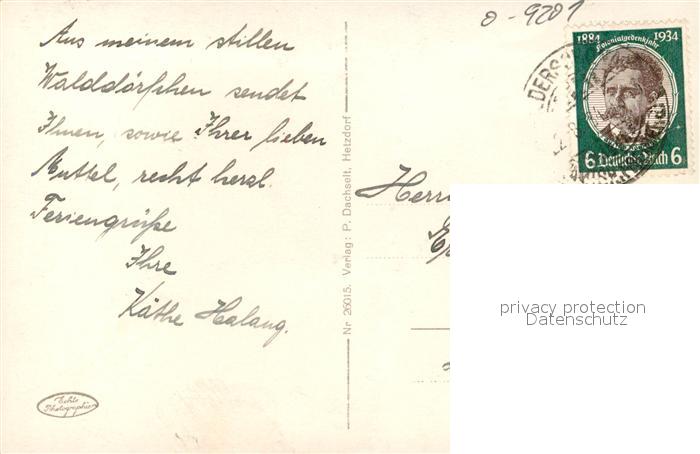 o-9201
Aus meinem stillen
Walddörfchen sendet
Ihnen, sowie Ihrer lieben
Muttel, recht herzl.
Feriengrüße
Ihre
Käthe Halang.
Echte
Photographie
Nr 26015. Verlag: P. Dachselt, Hetzdorf
1884 1934
Kolonialgedenkjahr
6 Deutsches Reich 6
Herrn
privacy protection
Datenschutz